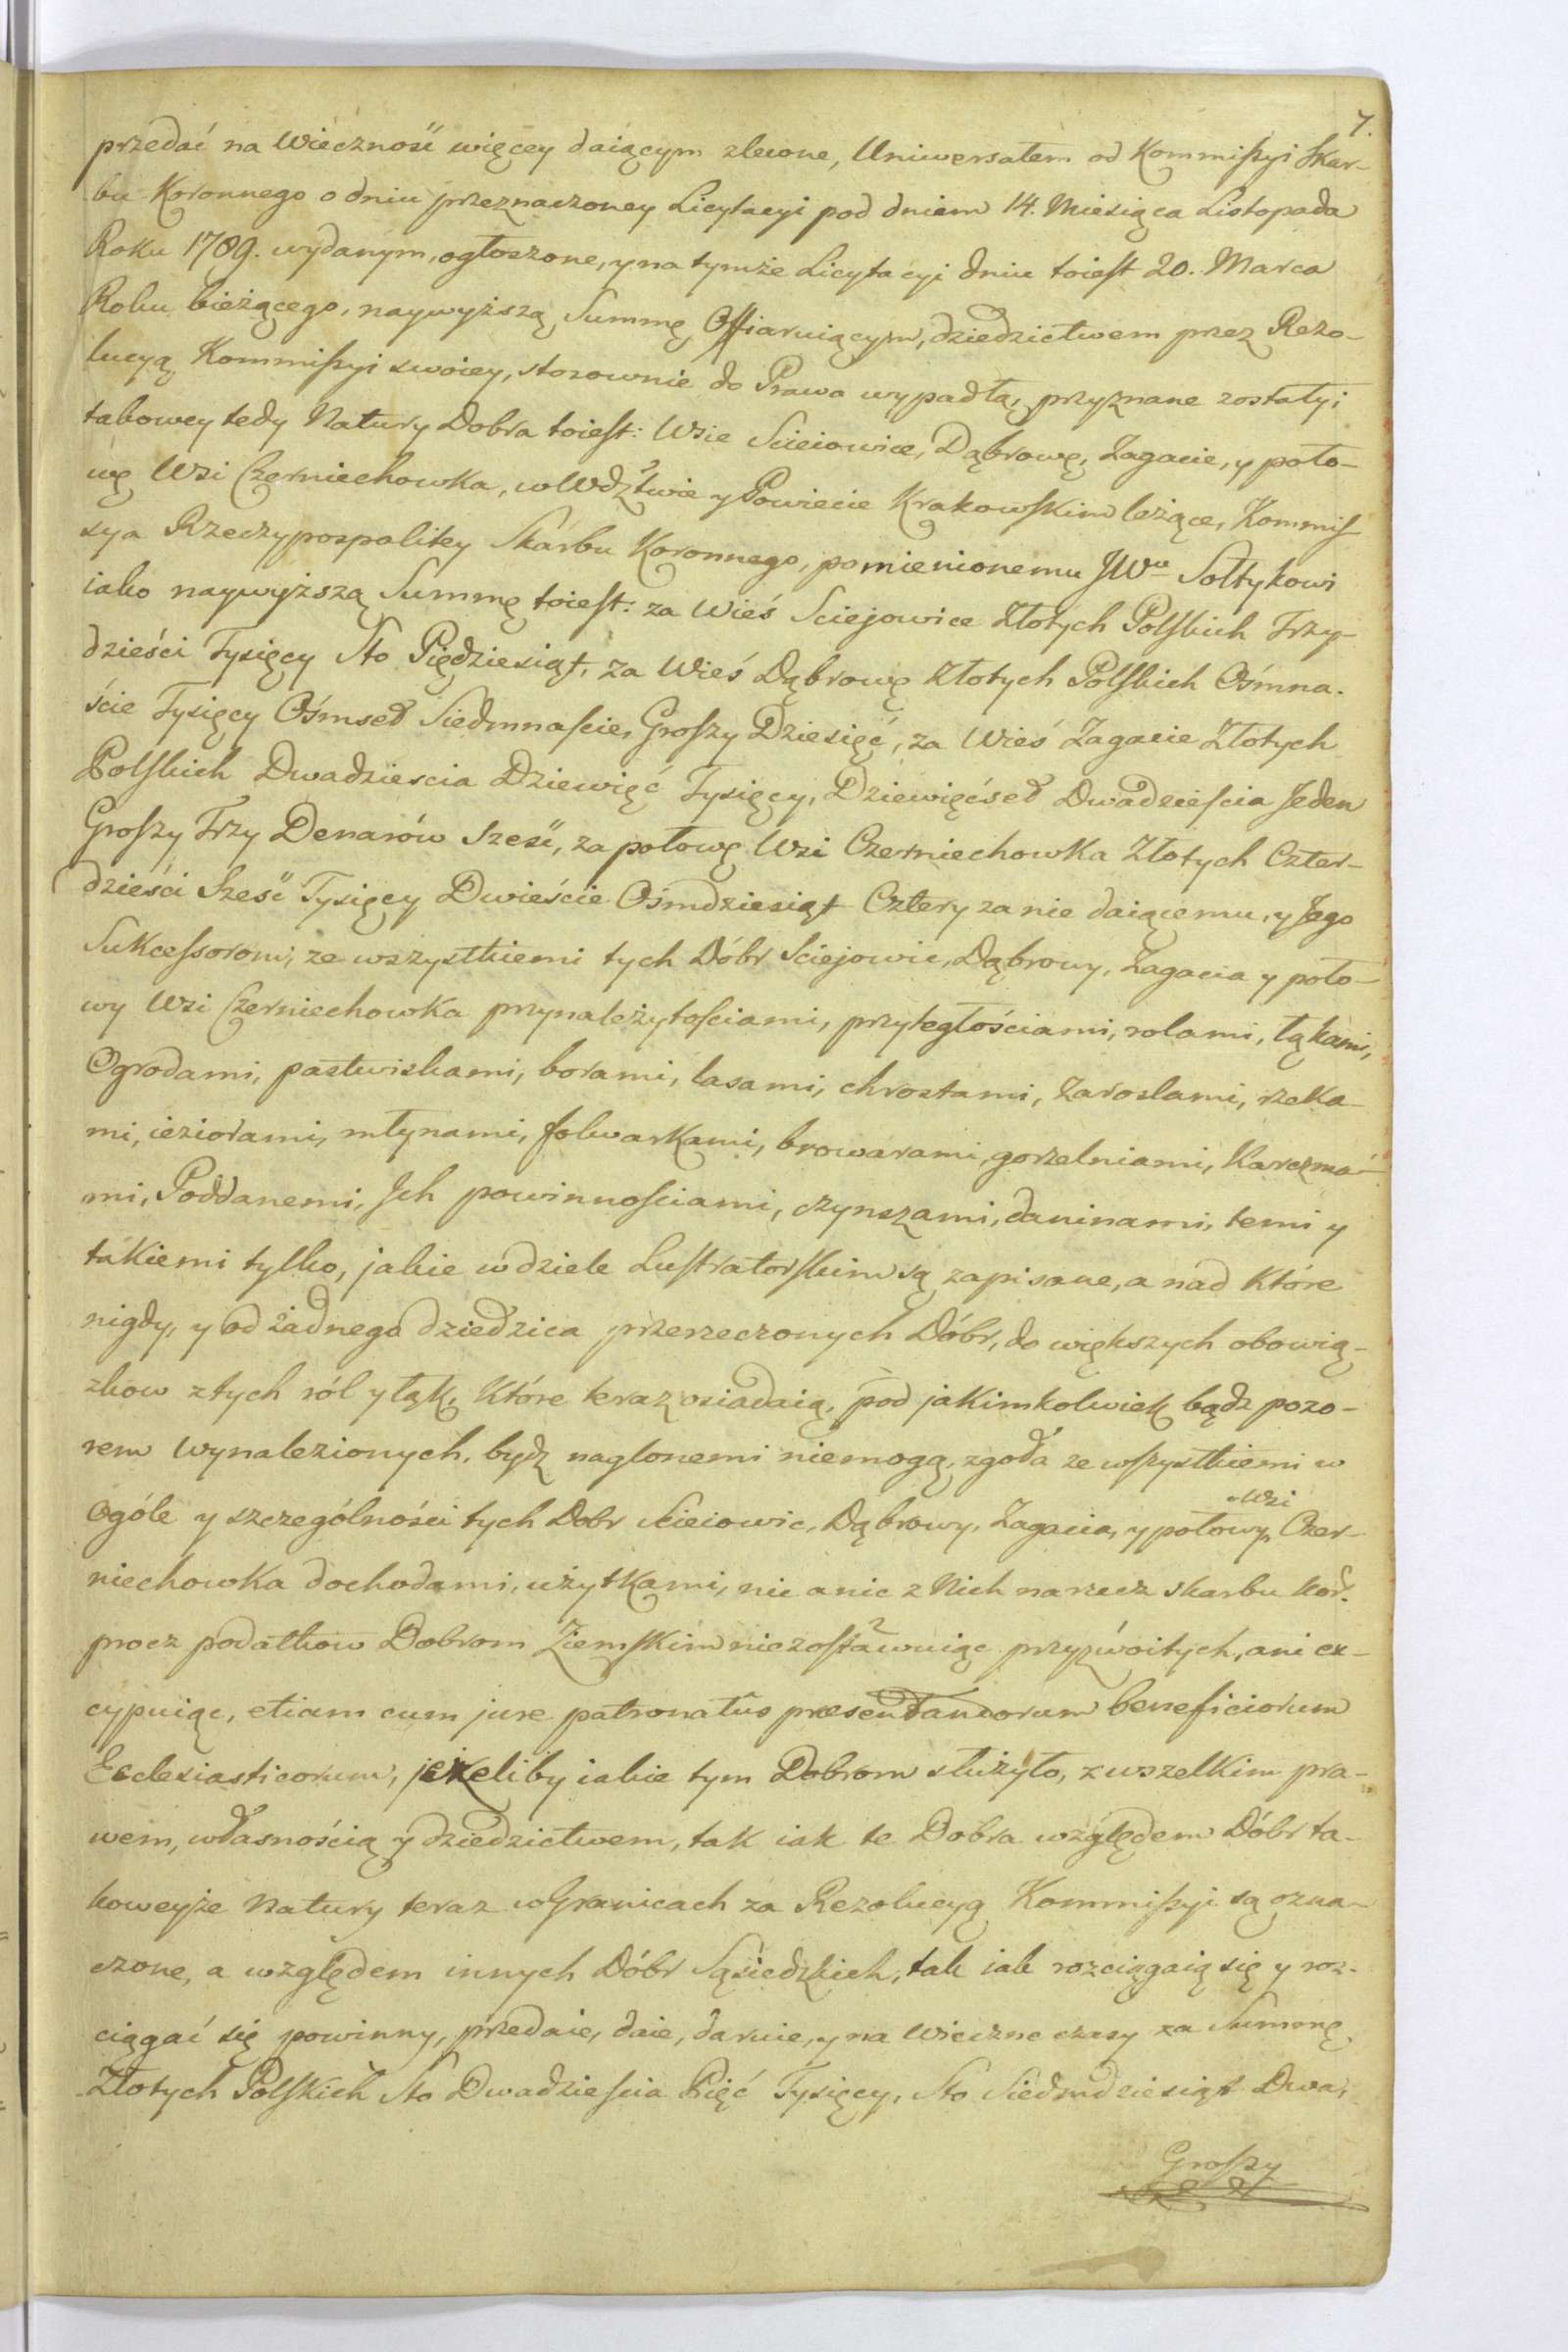 7.
przedać na Wieczność więcey daiącym zlecone, Uniwersałem od Kommissyi Skar-
bu Koronnego o dniu przeznaczoney Licytacyi pod dniem 14. Miesiąca Listopada
Roku 1789. wydanym, ogłoszone, y na tymże Licytacyi dniu toiest 20. Marca
Roku bieżącego, naywyższą Summę Offiaruiącym, dziedzictwem przez Rezo-
lucyą Kommissyi swoiey, stosownie do Prawa wypadłą, przyznane zostały;
takowey tedy Natury Dobra toiest: Wsie Scieiowice, Dąbrowę, Zagacie, y poło-
wę Wsi Czerniechowka, w Wdztwie y Powiecie Krakowskim leżące, Kommis
sya Rzeczypospolitey Skarbu Koronnego, pomienionemu JWu Sołtykowi
iako naywyższą Summę toiest: za Wieś Sciejowice Złotych Polskich Trzy-
dzieści Tysięcy Sto Pięдziesiąt, za Wieś Dąbrowę Złotych Polskich Ośmna-
ście Tysięcy Ośmset Siedmnaście, Groszy Dziesięć, za Wieś Zagacie Złotych
Polskich Dwadziescia Dziewięć Tysięcy, Dziewięćset Dwadzieścia Jeden
Groszy Trzy Denarów Sześć, za połowę Wsi Czerniechowka Złotych Czter-
dzieści Sześć Tysięcy Dwieście Ośmdziesiąt Cztery za nie daiącemu, y Jego
Sukcessorom, ze wszystkiemi tych Dóbr Sciejowic, Dąbrowy, Zagacia y poło-
wy Wsi Czerniechowka przynależytościami, przyległościami, rolami, łąkami,
Ogrodami, pastwiskami, borami, lasami, chrostami, zaroslami, rzeka-
mi, ieziorami, młynami, folwarkami, browarami, gorzelniami, Karczma-
mi, Poddanemi, Jch powinnościami, czynszami, daninami, temi y
takiemi tylko, jakie w dziele Lustratorskim są zapisane, a nad które
nigdy, y od żadnego dziedzica przerzeczonych Dóbr, do większych obowią-
zkow z tych ról y łąk, które teraz osiadaią, pod jakimkolwiek bądz pozo-
rem wynalezionych, bydz naglonemi niemogą, zgoła ze wszystkiemi w
Ogóle y szczególności tych Dobr Scieiowic, Dąbrowy, Zagacia, y połowy Wsi Czer-
niechowka dochodami, użytkami, nic a nic z Nich na rzecz skarbu Kor.
procz podatkow Dobrom Ziemskim niezostawuiąc przyzwoitych, ani ex-
cypuiąc, etiam cum jure patronatûs praesentandorum beneficiorum
Ecclesiasticorum, jeżeliby iakie tym Dobrom służyło, z wszelkim pra-
wem, własnością y dziedzictwem, tak iak te Dobra względem Dóbr ta-
koweyże Natury teraz w Granicach za Rezolucyą Kommissyi są ozna-
czone, a względem innych Dóbr Sąsiedzkich, tak iak rozciągaią się y roz-
ciągać się powinny, przedaie, daie, daruie, y na wieczne czasy za Summę
Złotych Polskich Sto Dwadzieścia Pięć Tysięcy, Sto Siedmdziesiąt Dwa,
Groszy